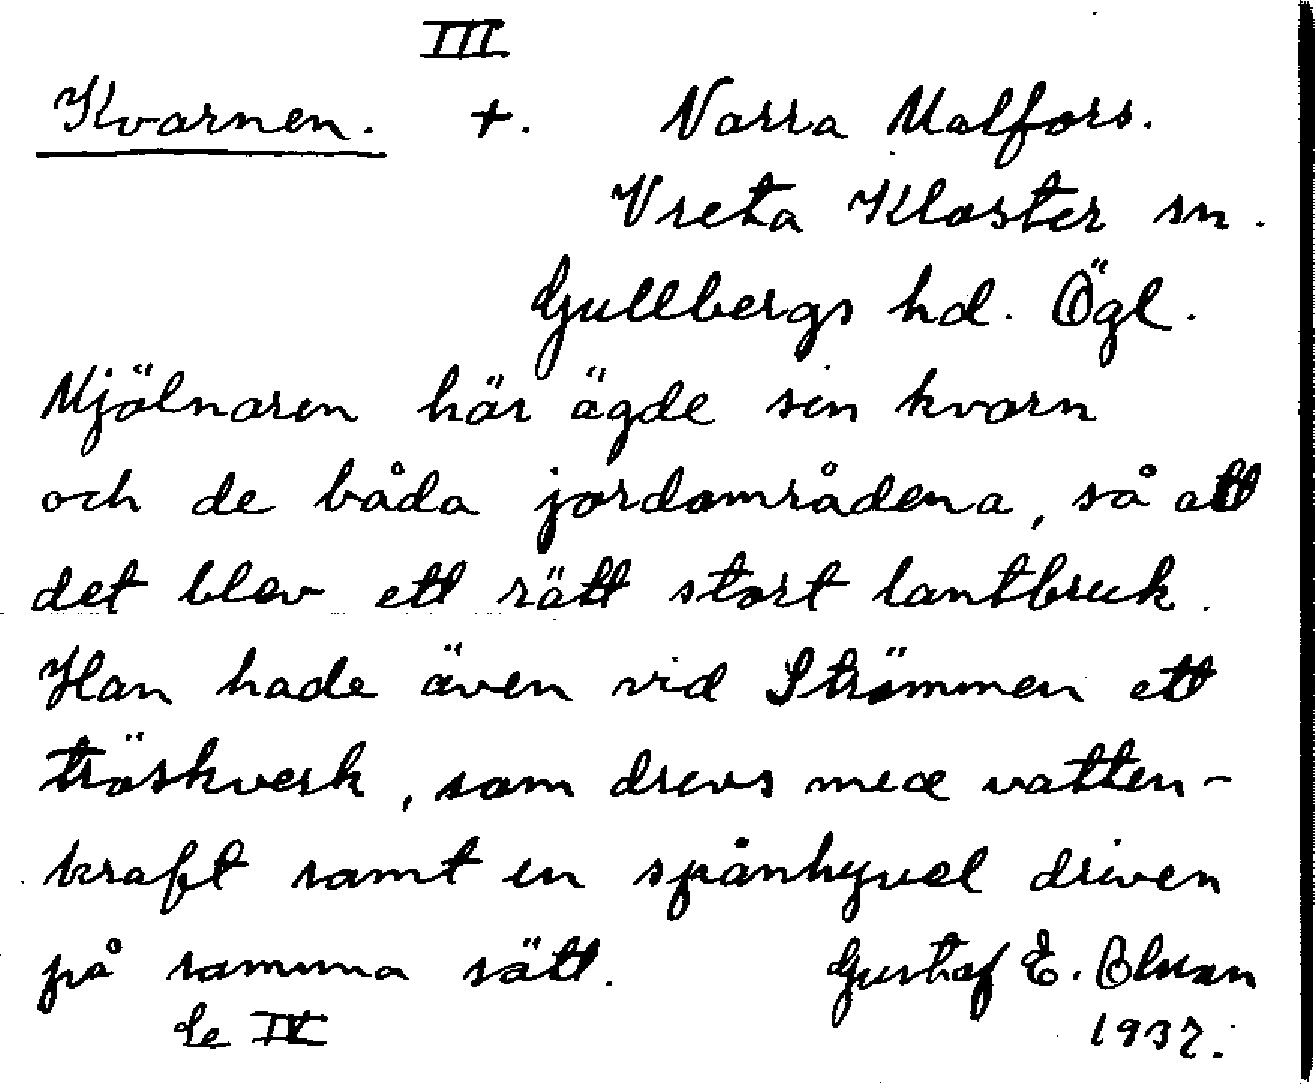 III
Kvarnen. +. Norra Malfors.
Vreta Kloster sn.
Gullbergs hd. Ögl.
Mjölnaren här ägde sin kvarn
och de båda jordområdena, så att
det blev ett rätt stort lantbruk.
Han hade även vid Strömmen ett
tröskverk, som drevs med vatten-
kraft samt en spånhyvel driven
på samma sätt. Gustaf E. Olsson
Se IV 1937.